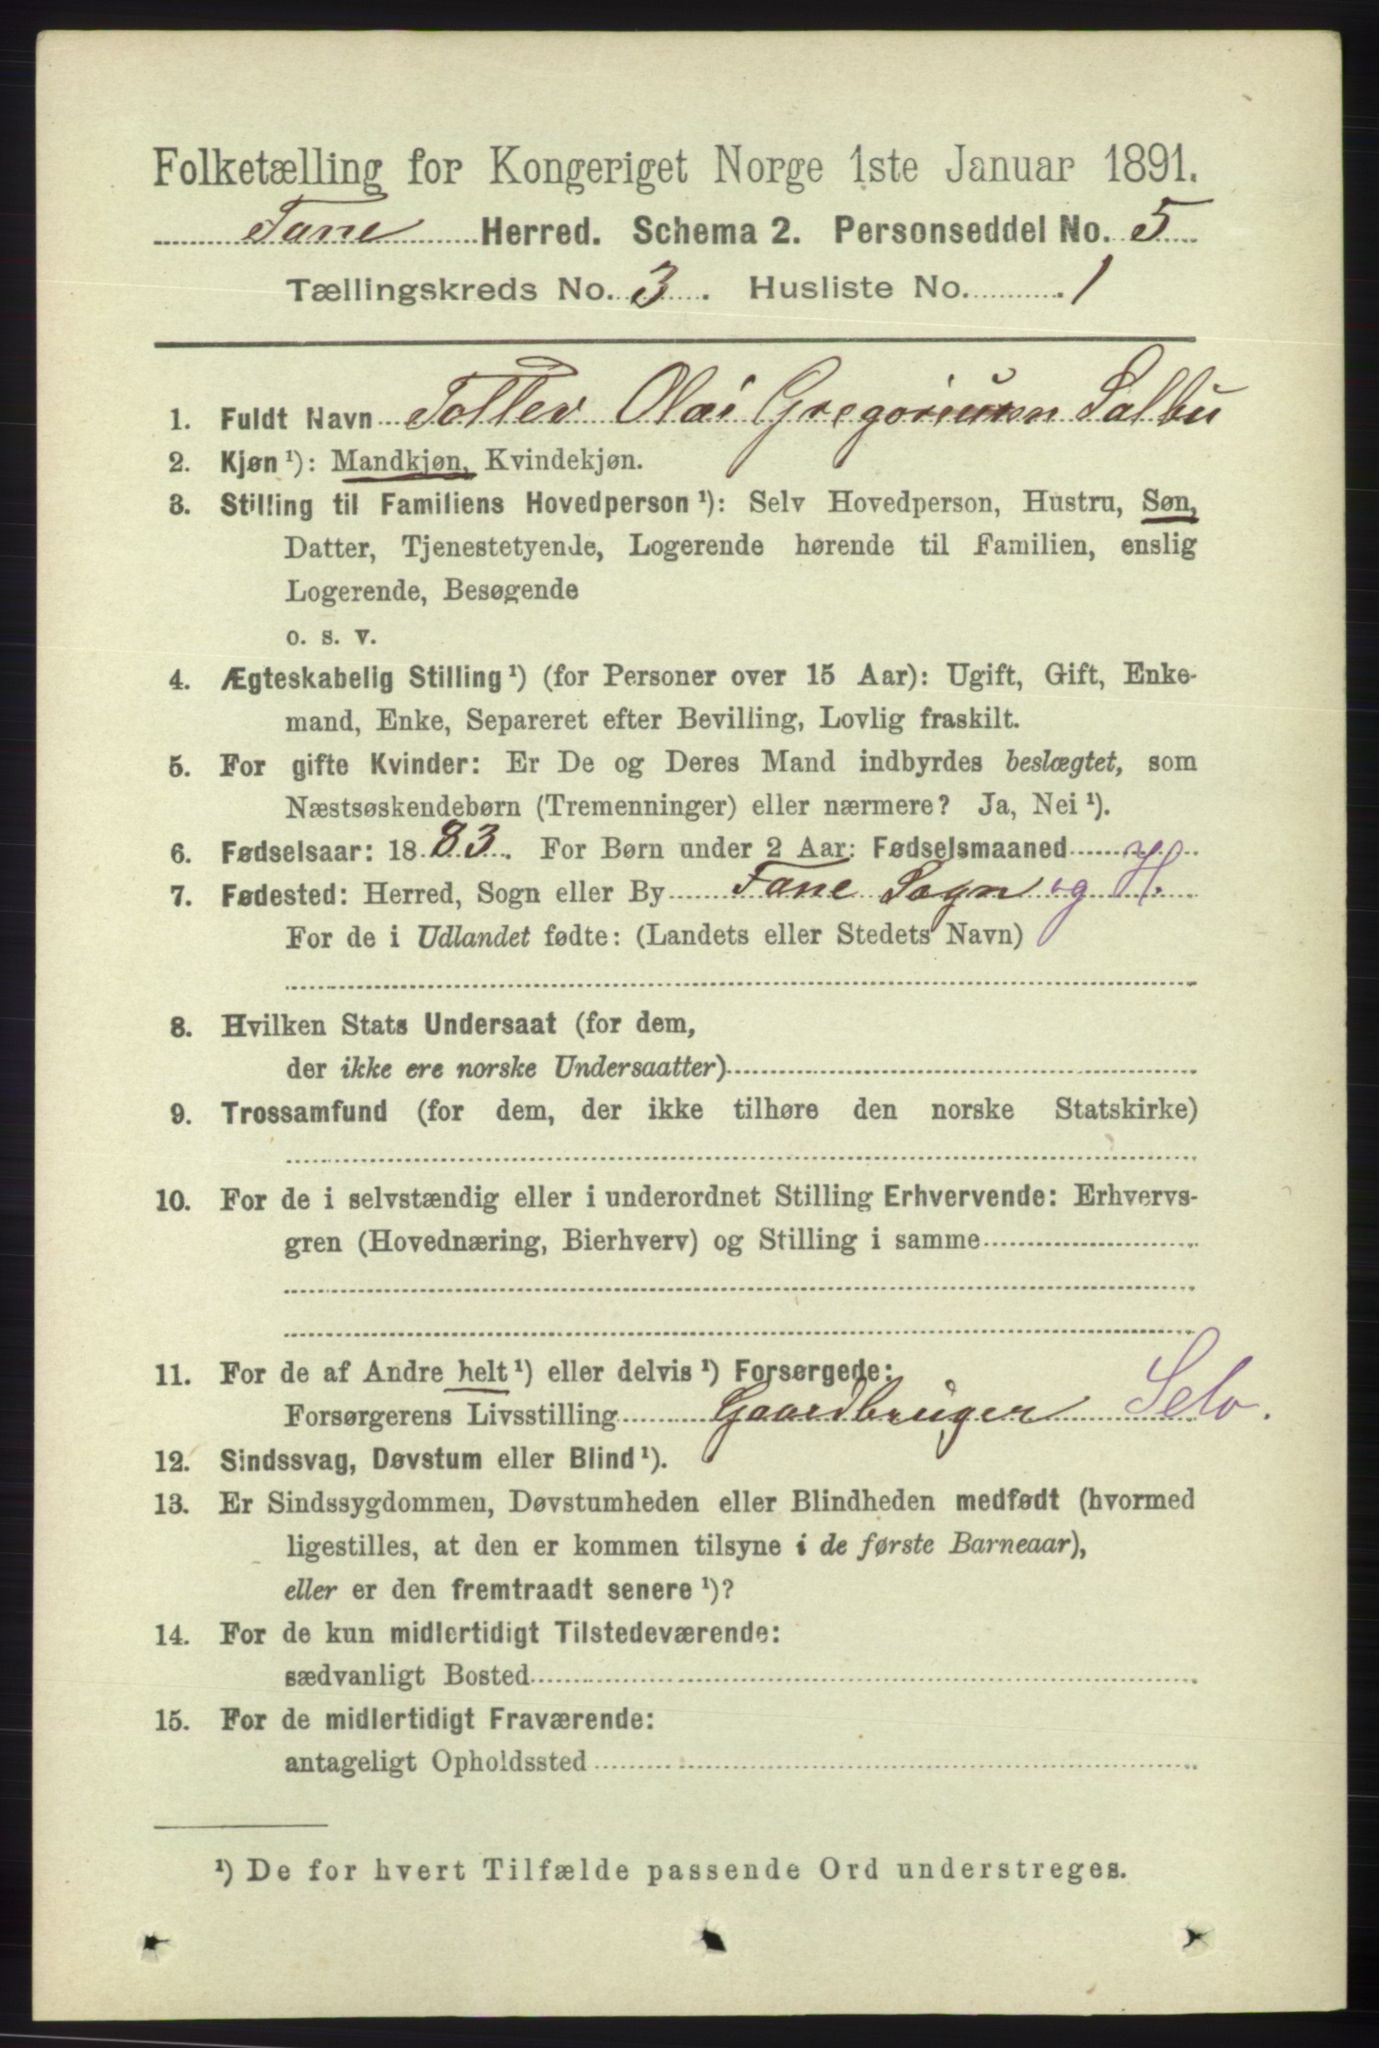 Folketælling for Kongeriget Norge 1ste Januar 1891.
Fane Herred. Schema 2. Personseddel No. 5
Tællingskreds No. 3. Husliste No. 1
1. Fuldt Navn Tollev Olai Gregoriussen Salbu
2. Kjøn ¹): Mandkjøn, Kvindekjøn.
3. Stilling til Familiens Hovedperson ¹): Selv Hovedperson, Hustru, Søn,
Datter, Tjenestetyende, Logerende hørende til Familien, enslig
Logerende, Besøgende
o. s. v.
4. Ægteskabelig Stilling ¹) (for Personer over 15 Aar): Ugift, Gift, Enke-
mand, Enke, Separeret efter Bevilling, Lovlig fraskilt.
5. For gifte Kvinder: Er De og Deres Mand indbyrdes beslægtet, som
Næstsøskendebørn (Tremenninger) eller nærmere? Ja, Nei ¹).
6. Fødselsaar: 1883. For Børn under 2 Aar: Fødselsmaaned
7. Fødested: Herred, Sogn eller By Fane Sogn og H.
For de i Udlandet fødte: (Landets eller Stedets Navn)
8. Hvilken Stats Undersaat (for dem,
der ikke ere norske Undersaatter)
9. Trossamfund (for dem, der ikke tilhøre den norske Statskirke)
10. For de i selvstændig eller i underordnet Stilling Erhvervende: Erhvervs-
gren (Hovednæring, Bierhverv) og Stilling i samme
11. For de af Andre helt ¹) eller delvis ¹) Forsørgede:
Forsørgerens Livsstilling Gaardbruger Selv.
12. Sindssvag, Døvstum eller Blind ¹).
13. Er Sindssygdommen, Døvstumheden eller Blindheden medfødt (hvormed
ligestilles, at den er kommen tilsyne i de første Barneaar),
eller er den fremtraadt senere ¹)?
14. For de kun midlertidigt Tilstedeværende:
sædvanligt Bosted
15. For de midlertidigt Fraværende:
antageligt Opholdssted
¹) De for hvert Tilfælde passende Ord understreges.